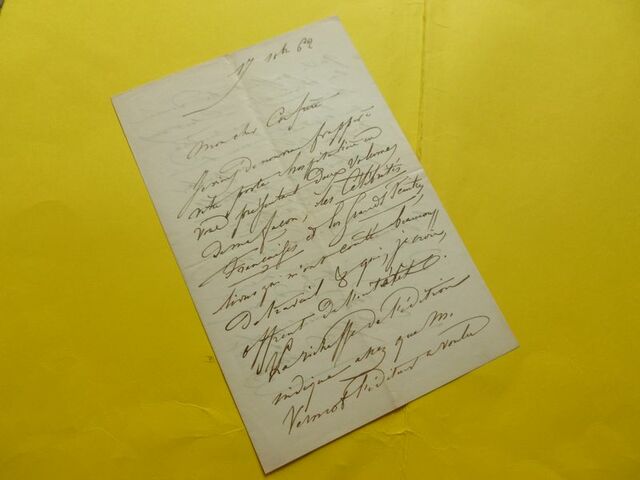 17 xbre 62
Mon cher Confrère
Je vous demande frapper à
votre porte hospitalière en
vous présentant deux volumes
de ma façon, les Célébrités
Françaises et les Grands
livres qui m'ont coûté beaucoup
de travail & qui, je crois,
offrent de l'intérêt.
La richesse de l'édition
indique assez que M.
Vermot l'éditeur a voulu